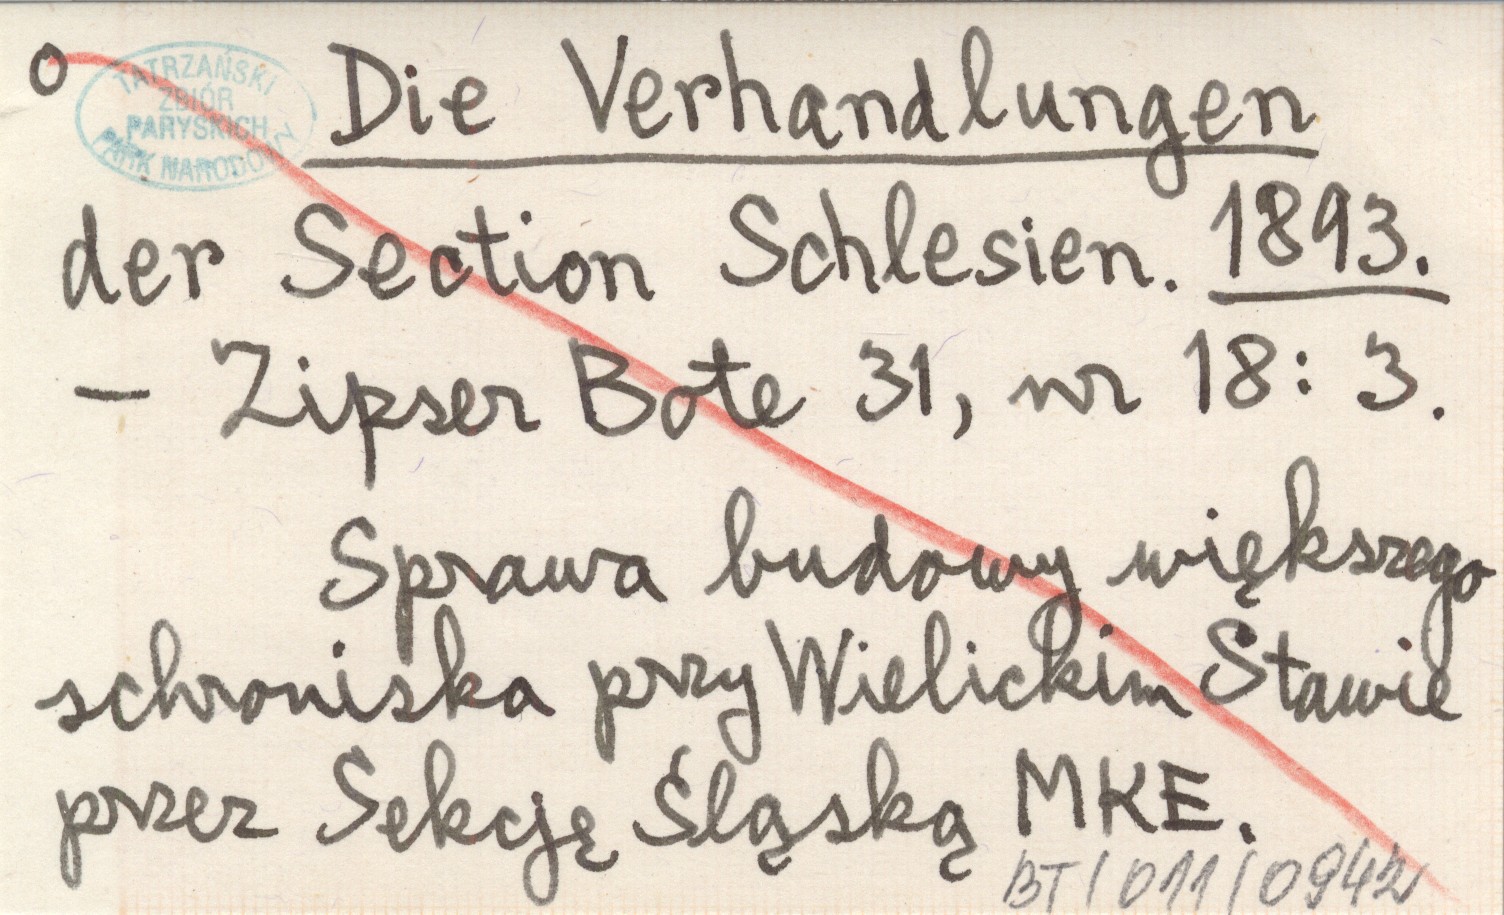 o
TATRZAŃSKI
ZBIÓR
PARYSKICH
PARK NARODOWY
Die Verhandlungen
der Section Schlesien. 1893.
– Zipser Bote 31, nr 18: 3.
Sprawa budowy większego
schroniska przy Wielickim Stawie
przez Sekcję Śląską MKE.
BT/011/0942